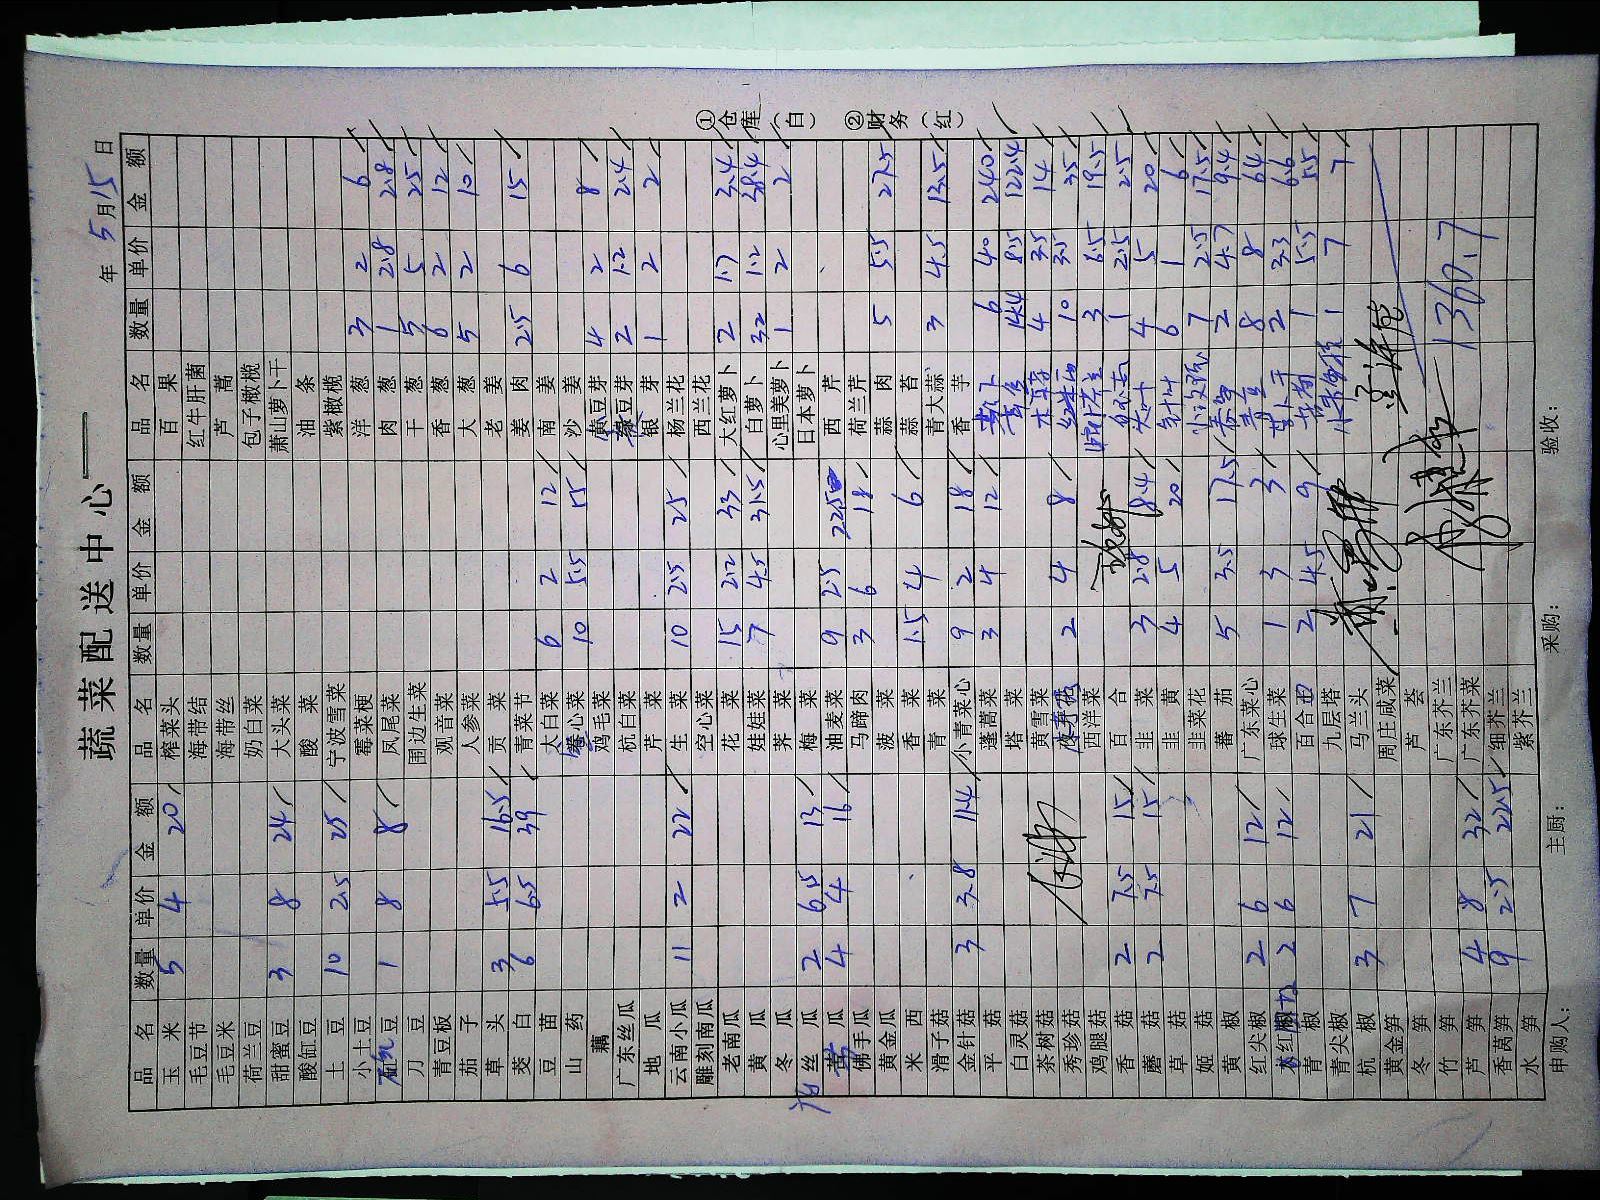 蔬菜配送中心
年 5月15日
品名 数量 单价 金额 品名 数量 单价 金额 品名 数量 单价 金额
玉米 5 4 20 榨菜头 百果
毛豆节 海带结 红牛肝菌
毛豆米 海带丝 芦蒿
荷兰豆 奶白菜 包子橄榄
甜蜜豆 3 8 24 大头菜 萧山萝卜干
酸缸豆 酸菜 油条
土豆 10 2.5 25 宁波雪菜 紫橄榄
小土豆 霉菜梗 洋葱 3 2 6
豆 1 8 8 凤尾菜 肉葱 1 2.8 2.8
刀豆 围边生菜 干葱 5 5 25
青豆板 观音菜 香葱 6 2 12
茄子 人参菜 大葱 5 2 10
草头 3 5.5 16.5 贡菜 老姜
茭白 6 6.5 39 青菜节 姜肉 2.5 6 15
豆苗 大白菜 6 2 12 南姜
山药 心菜 10 5.5 55 沙姜
藕 鸡毛菜 黄豆芽 4 2 8
广东丝瓜 杭白菜 豆芽 2 1.2 2.4
地瓜 芹菜 银芽 1 2 2
云南小瓜 11 2 22 生菜 10 2.5 25 杨兰花
雕刻南瓜 空心菜 西兰花
老南瓜 花菜 15 2.2 33 大红萝卜 2 1.7 3.4
黄瓜 娃娃菜 7 4.5 31.5 白萝卜 32 1.2 38.4
冬瓜 荠菜 心里美萝卜 1 2 2
丝瓜 2 6.5 13 梅菜 日本萝卜
瓜 4 4 16 油麦菜 9 2.5 22.5 西芹
佛手瓜 马蹄肉 3 6 18 荷兰芹
黄金瓜 菠菜 蒜肉 5 5.5 27.5
米西 香菜 1.5 4 6 蒜苔
滑子菇 青菜 青大蒜 3 4.5 13.5
金针菇 3 3.8 11.4 小青菜心 9 2 18 香芋
平菇 蓬蒿菜 3 4 12 6 40 240
白灵菇 塔菜 14.4 8.5 122.4
茶树菇 黄雪菜 4 3.5 14
秀珍菇 2 4 8 10 3.5 35
鸡腿菇 西洋菜 3 6.5 19.5
香菇 2 7.5 15 百合 1 2.5 2.5
蘑菇 2 7.5 15 韭菜 3 2.8 8.4 4 5 20
草菇 韭黄 4 5 20 6 1 6
姬菇 韭菜花 7 2.5 17.5
黄椒 蕃茄 5 3.5 17.5 2 4.7 9.4
红尖椒 2 6 12 广东菜心 8 8 64
红椒 2 6 12 球生菜 1 3 3 萝卜干 2 3.3 6.6
青椒 百合 2 4.5 9 1 5.5 5.5
青尖椒 九层塔 1 7 7
杭椒 3 7 21 马兰头
黄金笋 周庄咸菜
冬笋 芦荟
竹笋 广东芥兰 1360.7
芦笋 4 8 32 广东芥菜
香莴笋 9 2.5 22.5 细芥兰
水笋 紫芥兰
申购人： 主厨： 采购： 验收：
①仓库（白） ②财务（红）